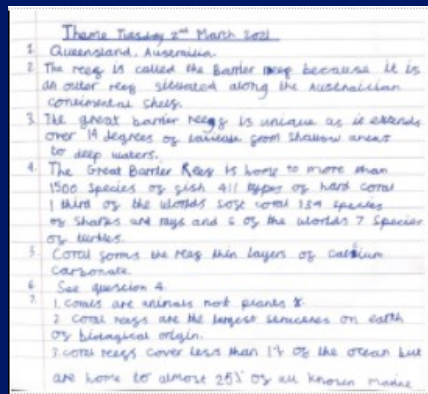 Theme Tuesday 2nd March 2021
1. Queensland, Austrailia.
2. The reef is called the Barrier reef because it is
an outer reef situated along the Austrailian
continental shelf.
3. The great barrier reefs is unique as it extends
over 14 degrees of latitude from shallow areas
to deep waters.
4. The Great Barrier Reef is home to more than
1500 species of fish 411 types of hard coral
1 third of the worlds soft coral 134 species
of sharks and rays and 6 of the worlds 7 species
of turtles.
5. Coral forms the reef thin layers of calsium
carbonate.
6. See question 4.
7. 1. corals are animals not plants
2. coral reefs are the largest structures on earth
of biological origin.
3. coral reefs cover less than 1% of the ocean but
are home to almost 25% of all known marine